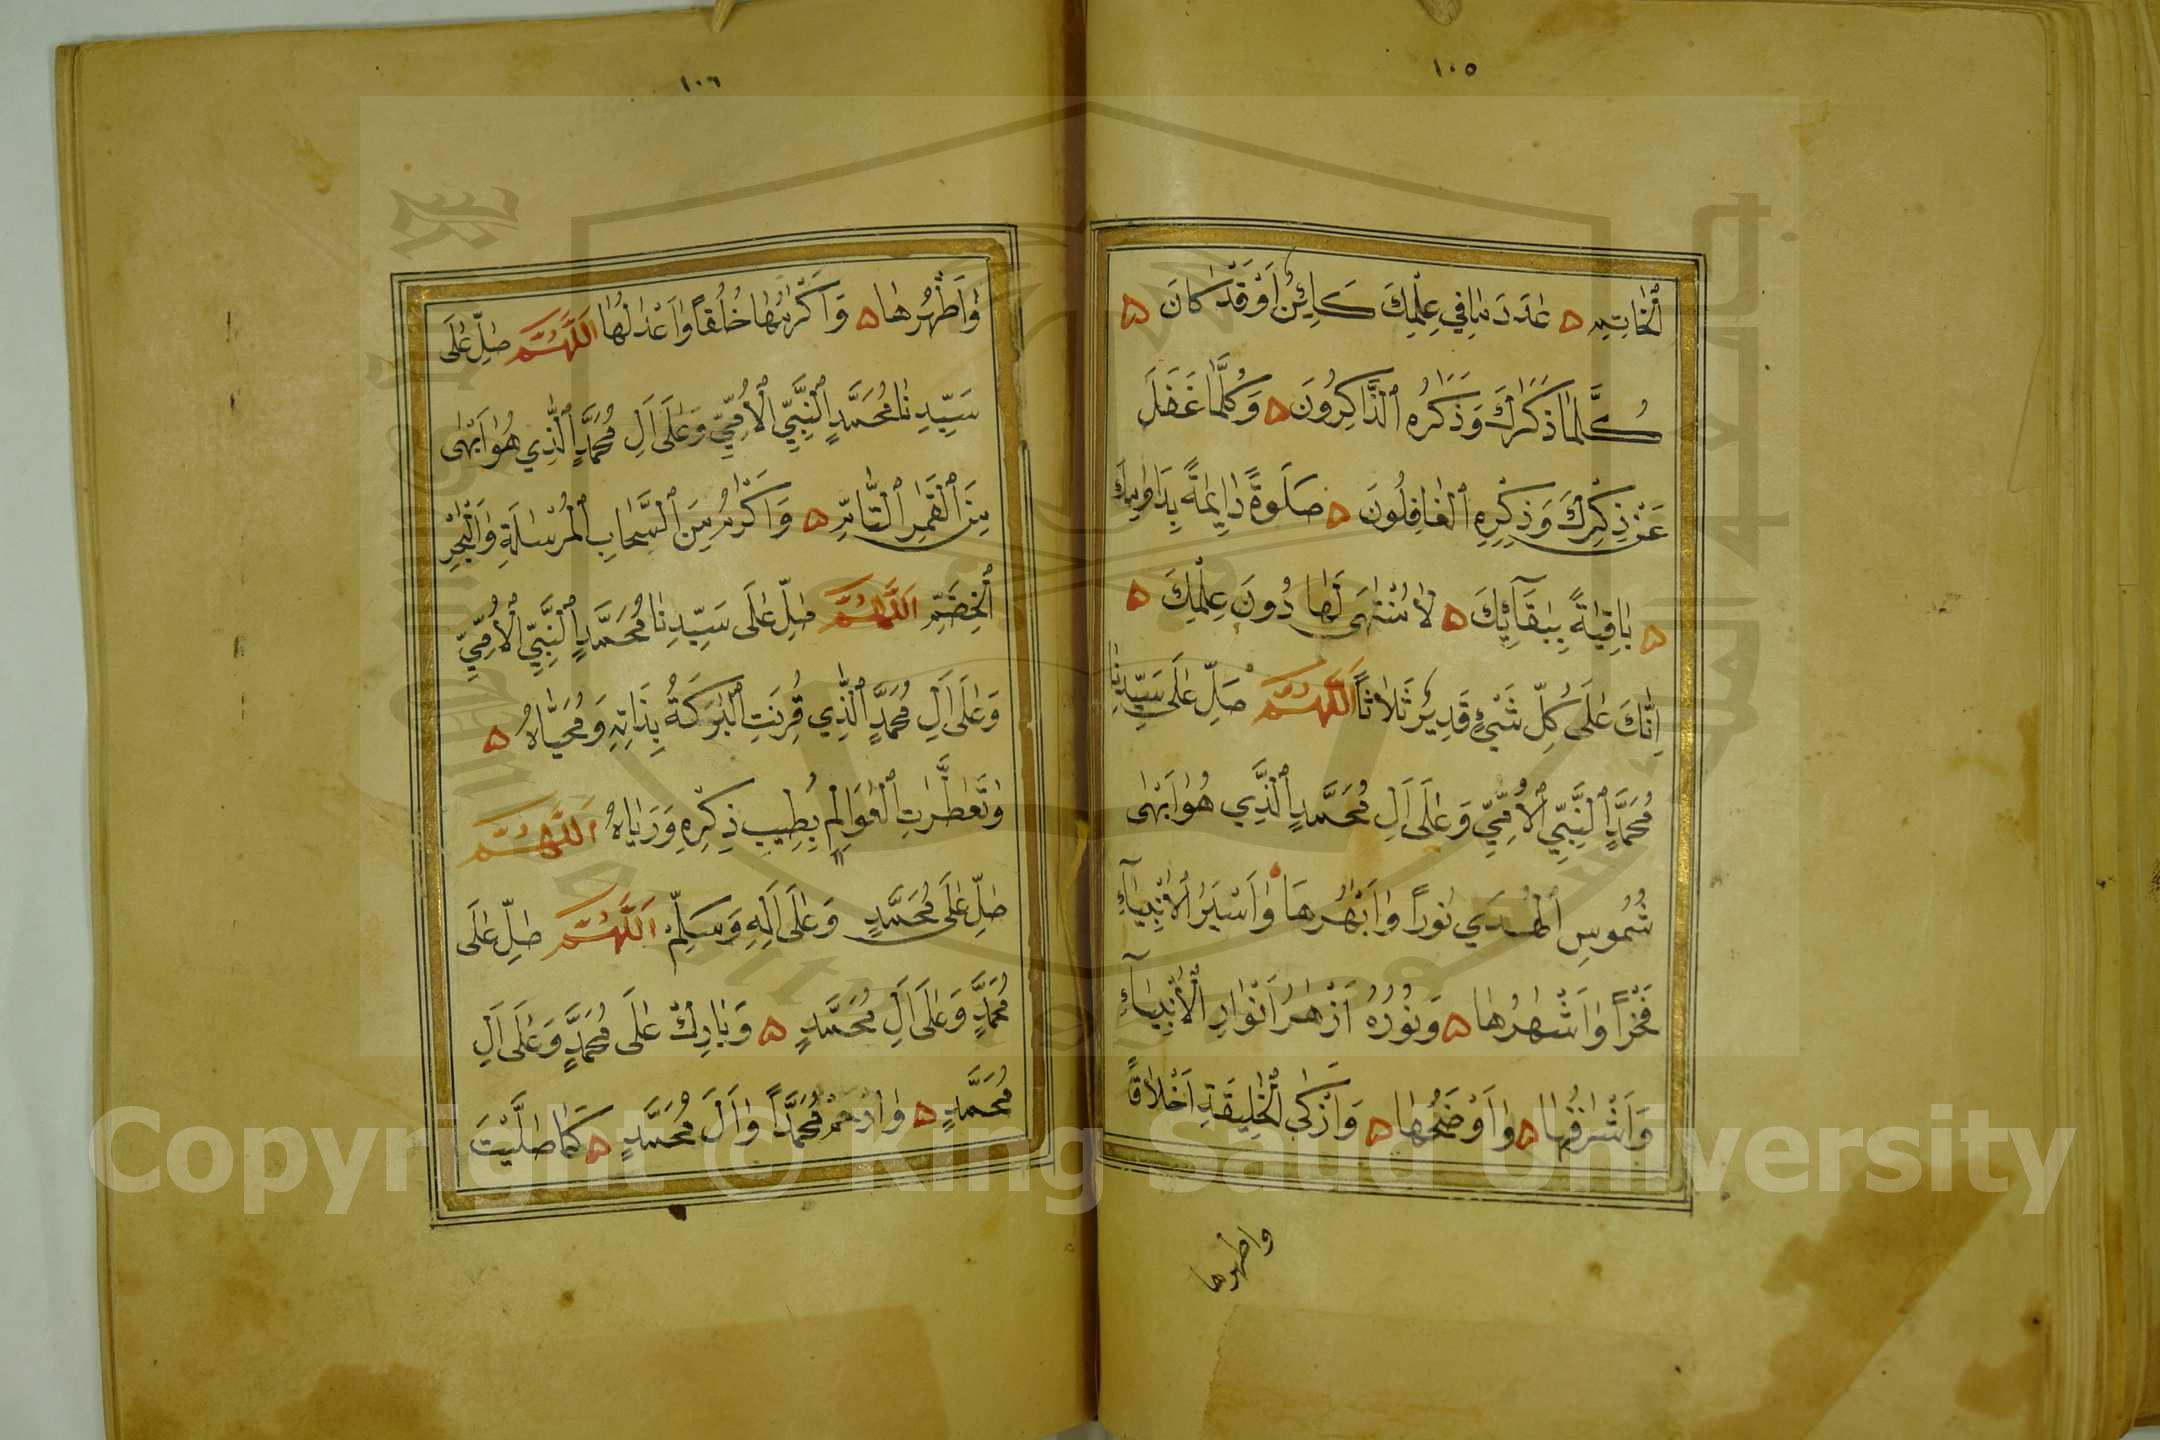 ١٠٥
الْخَاتِمِ ه عَدَدَ مَا فِي عِلْمِكَ كَائِنٌ أَوْ قَدْ كَانَ ه
كُلَّمَا ذَكَرَكَ وَذَكَرَهُ الذَّاكِرُونَ ه وَكُلَّمَا غَفَلَ
عَنْ ذِكْرِكَ وَذِكْرِهِ الْغَافِلُونَ ه صَلَوةً دَائِمَةً بِدَوَامِكَ
ه بَاقِيَةً بِبَقَآئِكَ ه لَا مُنْتَهَى لَهَا دُونَ عِلْمِكَ ه
اِنَّكَ عَلَى كُلِّ شَيْءٍ قَدِيرٌ ثَلَاثًا اَللَّهُمَّ صَلِّ عَلَى سَيِّدِنَا
مُحَمَّدٍ النَّبِيِّ الْأُمِّيِّ وَعَلَى اَلِ مُحَمَّدٍ الَّذِي هُوَ اَبْهَى
شُمُوسِ الْهُدَي نُورًا وَاَبْهَرُهَا وَاَسْيَرُ الْاَنْبِيَآءِ
فَخْرًا وَاَشْهَرُهَا ه وَنُورُهُ اَزْهَرُ اَنْوَارِ الْأَنْبِيَآءِ
وَاَشْرَفُهَا ه وَاَوْضَحُهَا ه وَاَزْكَى الْخَلِيقَةِ اَخْلَاقًا
واطهرها
١٠٦
وَاَطْهَرُهَا ه وَاَكْرَمُهَا خُلُقًا وَاَعْدَلُهَا اَللَّهُمَّ صَلِّ عَلَى
سَيِّدِنَا مُحَمَّدٍ النَّبِيِّ الْأُمِّيِّ وَعَلَى اَلِ مُحَمَّدٍ الَّذِي هُوَ اَبْهَى
مِنَ الْقَمَرِ التَّامِّ ه وَاَكْرَمُ مِنَ السَّحَابِ الْمُرْسَلَةِ وَالْبَحْرِ
الْخِضَمِّ اَللَّهُمَّ صَلِّ عَلَى سَيِّدِنَا مُحَمَّدٍ النَّبِيِّ الْأُمِّيِّ
وَعَلَى اَلِ مُحَمَّدٍ الَّذِي قُرِنَتِ الْبَرَكَةُ بِذَاتِهِ وَمُحَيَّاهُ ه
وَتَعَطَّرَتِ الْعَوَالِمُ بِطِيبِ ذِكْرِهِ وَرَيَّاهُ اَللَّهُمَّ
صَلِّ عَلَى مُحَمَّدٍ وَعَلَى اَلِهِ وَسَلِّمْ اَللَّهُمَّ صَلِّ عَلَى
مُحَمَّدٍ وَعَلَى اَلِ مُحَمَّدٍ ه وَبَارِكْ عَلَى مُحَمَّدٍ وَعَلَى اَلِ
مُحَمَّدٍ ه وَارْحَمْ مُحَمَّدًا وَاَلَ مُحَمَّدٍ ه كَمَا صَلَّيْتَ
Copyright © King Saud University